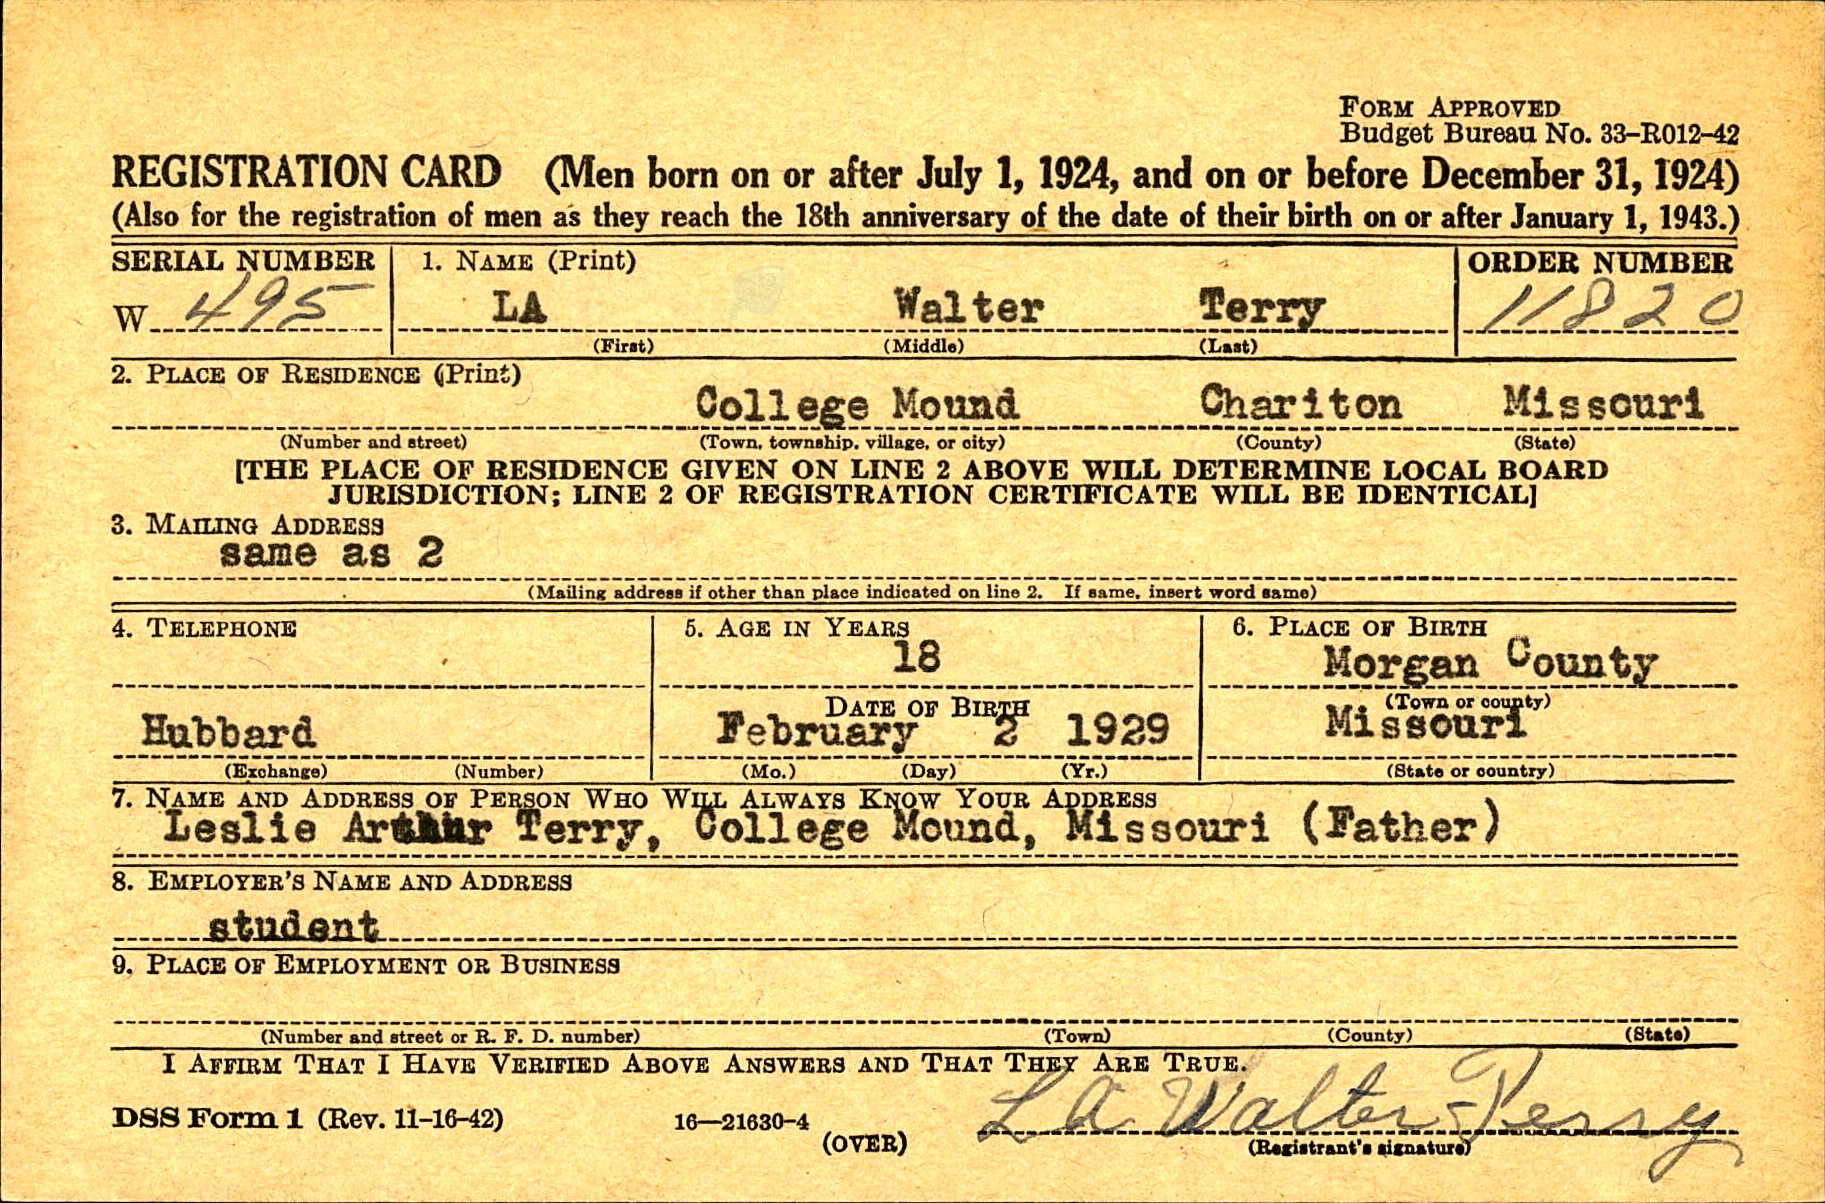 FORM APPROVED
Budget Bureau No. 33–R012–42
REGISTRATION CARD (Men born on or after July 1, 1924, and on or before December 31, 1924)
(Also for the registration of men as they reach the 18th anniversary of the date of their birth on or after January 1, 1943.)
SERIAL NUMBER 1. NAME (Print) ORDER NUMBER
W 495 LA Walter Terry 11820
(First) (Middle) (Last)
2. PLACE OF RESIDENCE (Print)
College Mound Chariton Missouri
(Number and street) (Town, township, village, or city) (County) (State)
[THE PLACE OF RESIDENCE GIVEN ON LINE 2 ABOVE WILL DETERMINE LOCAL BOARD
JURISDICTION; LINE 2 OF REGISTRATION CERTIFICATE WILL BE IDENTICAL]
3. MAILING ADDRESS
same as 2
(Mailing address if other than place indicated on line 2. If same, insert word same)
4. TELEPHONE 5. AGE IN YEARS 6. PLACE OF BIRTH
18 Morgan County
DATE OF BIRTH (Town or county)
Hubbard February 2 1929 Missouri
(Exchange) (Number) (Mo.) (Day) (Yr.) (State or country)
7. NAME AND ADDRESS OF PERSON WHO WILL ALWAYS KNOW YOUR ADDRESS
Leslie Arthur Terry, College Mound, Missouri (Father)
8. EMPLOYER'S NAME AND ADDRESS
student
9. PLACE OF EMPLOYMENT OR BUSINESS
(Number and street or R. F. D. number) (Town) (County) (State)
I AFFIRM THAT I HAVE VERIFIED ABOVE ANSWERS AND THAT THEY ARE TRUE.
DSS Form 1 (Rev. 11–16–42) 16—21630–4 L A Walter Terry
(OVER) (Registrant's signature)